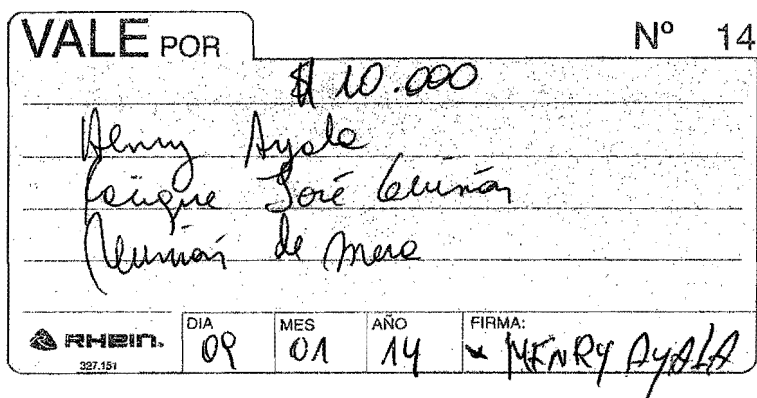 VALE POR Nº 14
$ 10.000
Henry Ayala
José
Reunión de
RHEIN.
327.151
DIA 09 MES 01 AÑO 14 FIRMA: HENRY AYALA